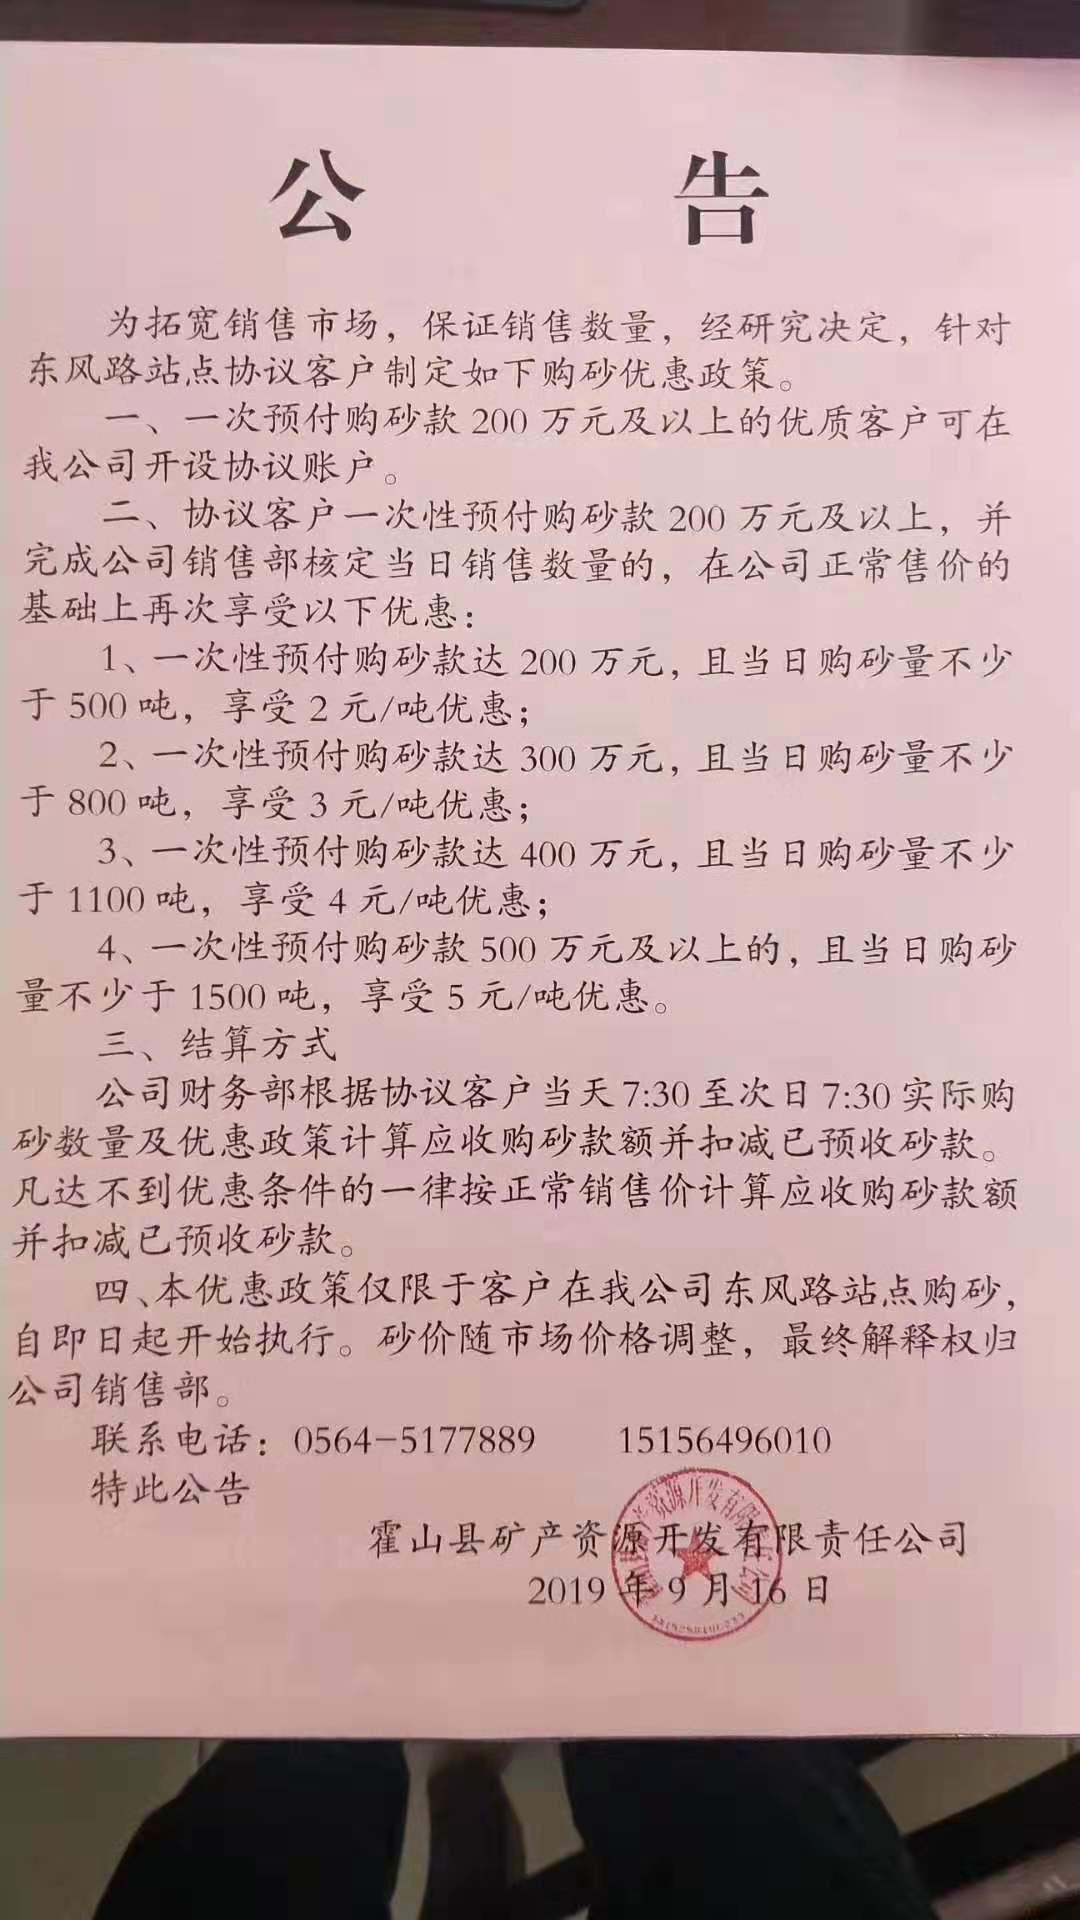 公告
为拓宽销售市场，保证销售数量，经研究决定，针对
东风路站点协议客户制定如下购砂优惠政策。
一、一次预付购砂款200万元及以上的优质客户可在
我公司开设协议账户。
二、协议客户一次性预付购砂款200万元及以上，并
完成公司销售部核定当日销售数量的，在公司正常售价的
基础上再次享受以下优惠：
1、一次性预付购砂款达200万元，且当日购砂量不少
于500吨，享受2元/吨优惠；
2、一次性预付购砂款达300万元，且当日购砂量不少
于800吨，享受3元/吨优惠；
3、一次性预付购砂款达400万元，且当日购砂量不少
于1100吨，享受4元/吨优惠；
4、一次性预付购砂款500万元及以上的，且当日购砂
量不少于1500吨，享受5元/吨优惠。
三、结算方式
公司财务部根据协议客户当天7:30至次日7:30实际购
砂数量及优惠政策计算应收购砂款额并扣减已预收砂款。
凡达不到优惠条件的一律按正常销售价计算应收购砂款额
并扣减已预收砂款。
四、本优惠政策仅限于客户在我公司东风路站点购砂，
自即日起开始执行。砂价随市场价格调整，最终解释权归
公司销售部。
联系电话：0564-5177889 15156496010
特此公告
霍山县矿产资源开发有限责任公司
2019年9月16日